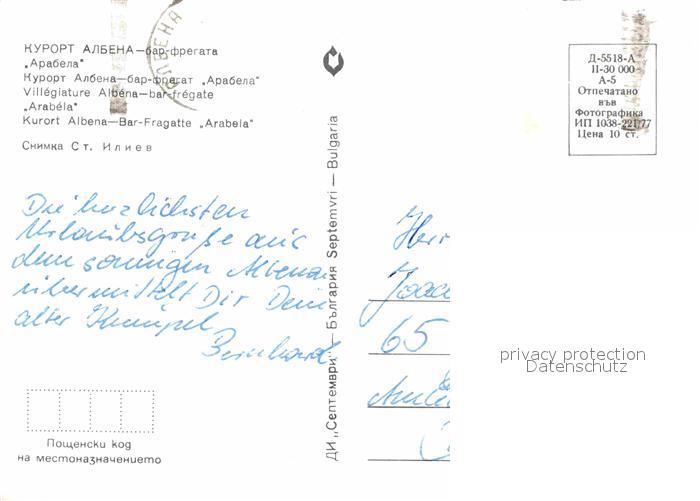 КУРОРТ АЛБЕНА—бар-фрегата
„Арабела"
Курорт Албена—бар-фрегат „Арабела"
Villégiature Albéna—bar-frégate
„Arabéla"
Kurort Albena—Bar-Fragatte „Arabela"
Снимка Ст. Илиев
АЛБЕНА
Die herzlichsten
Urlaubsgrüße aus
dem sonnigen Albena
übermittelt Dir Dein
alter Kumpel
Bernhard
Пощенски код
на местоназначението
ДИ „Септември" — България Septemvri — Bulgaria
Д-5518-А
II-30 000
А-5
Отпечатано
във
Фотографика
ИП 1038-221/77
Цена 10 ст.
Herr
Joac
65
privacy protection
Datenschutz